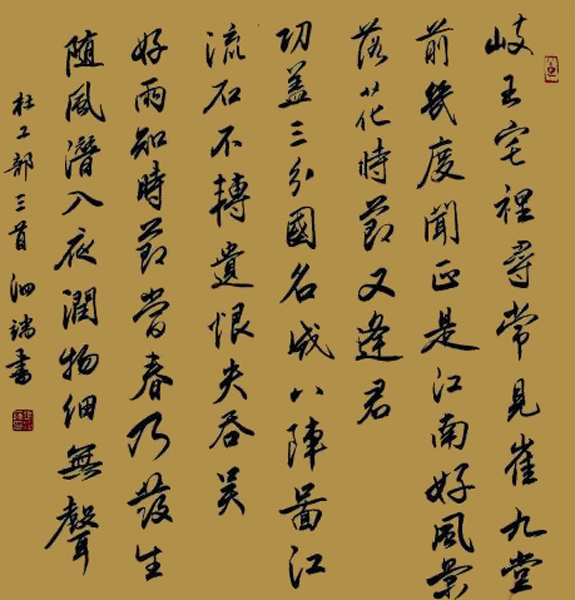 岐王宅裡尋常見崔九堂
前幾度聞正是江南好風景
落花時節又逢君
功蓋三分國名成八陣圖江
流石不轉遺恨失吞吴
好雨知時節當春乃發生
随風潛入夜潤物細無聲
杜工部三首泗端書